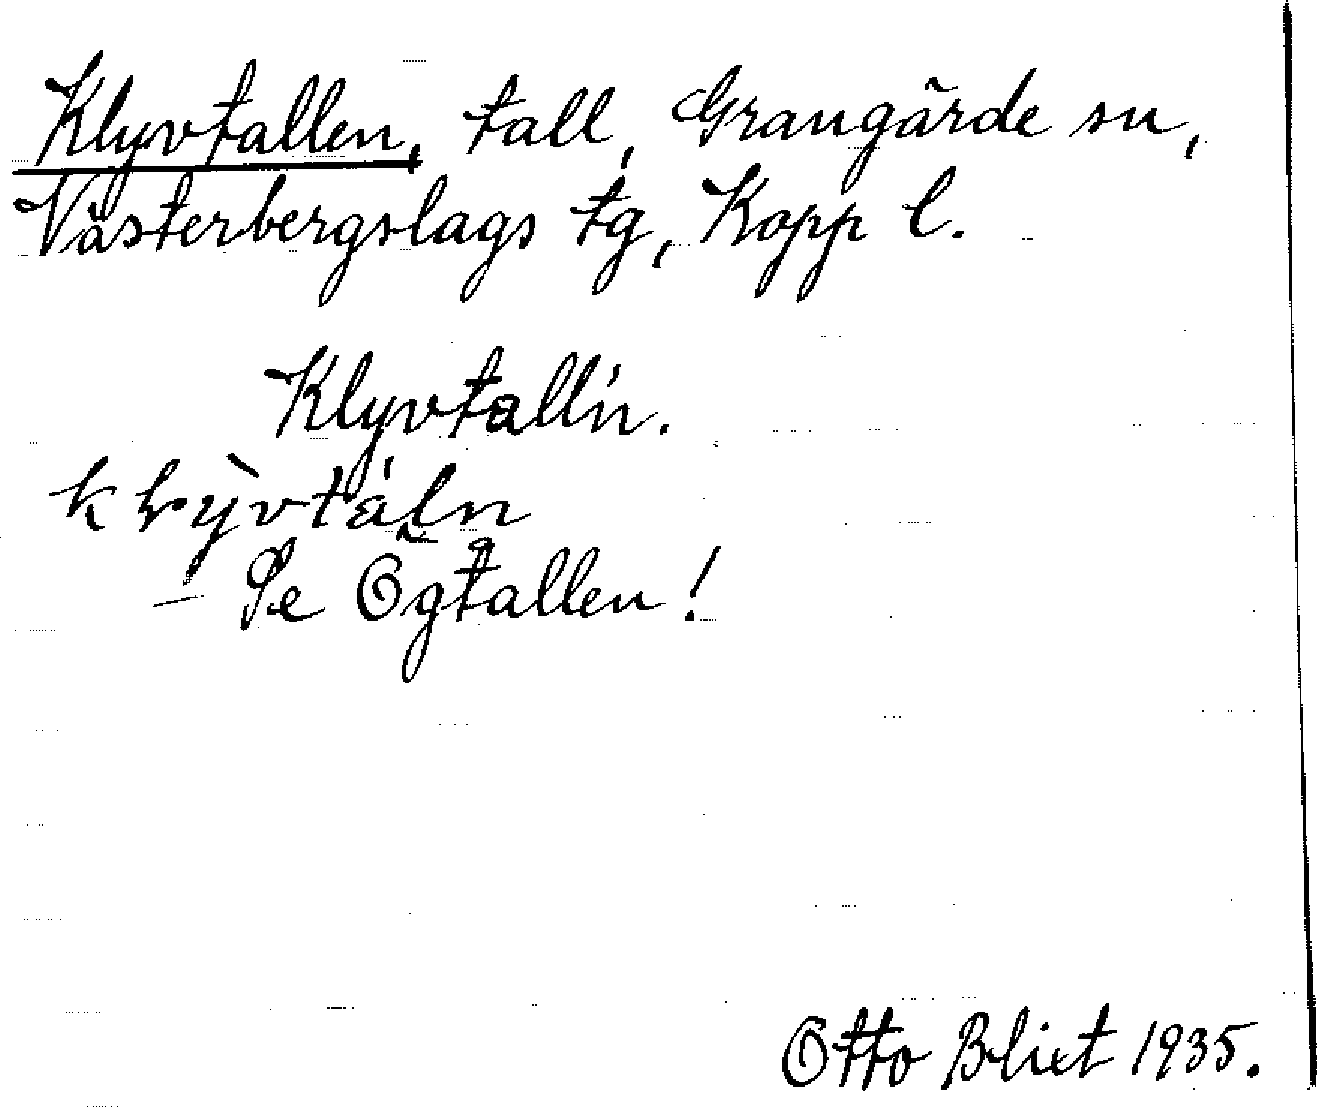 Klyvtallen, tall, Grangärde sn,
Västerbergslags tg, Kopp l.
Klyvtall'n.
kḷỳvtáln
– Se Ögtallen!
Otto Blixt 1935.